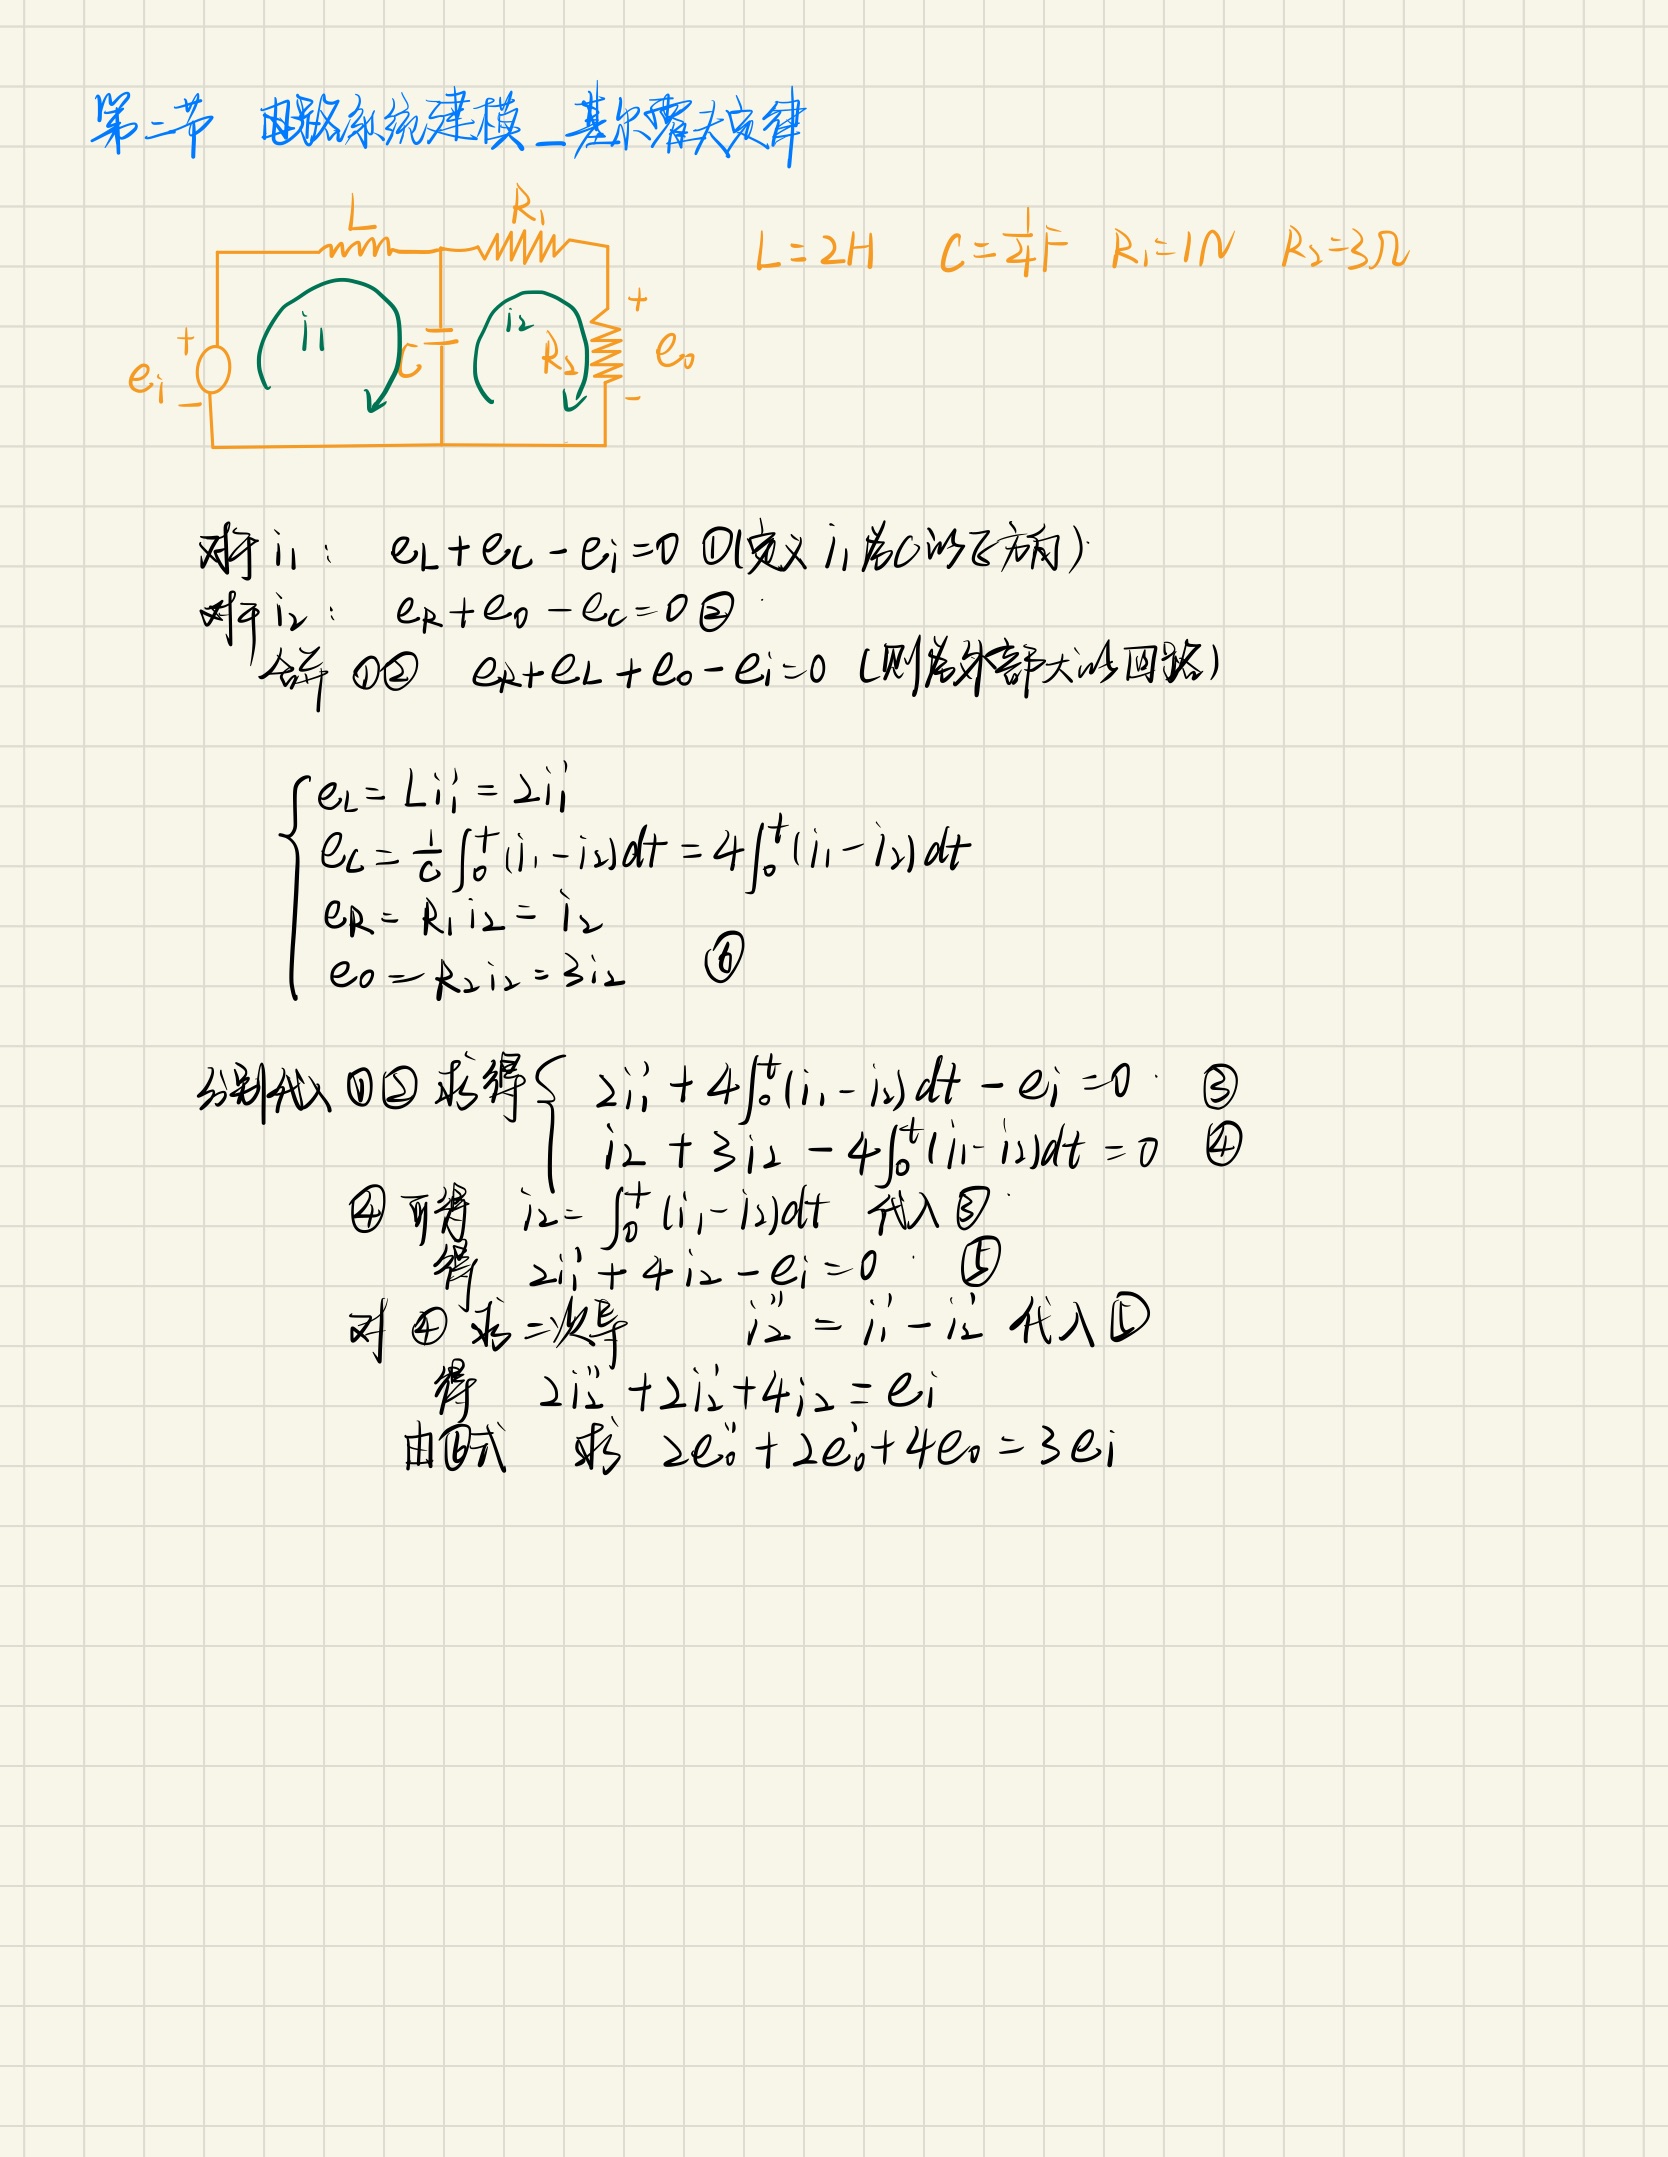 第二节 电路系统建模_基尔霍夫定律
L R₁
L=2H C=1/4F R₁=1Ω R₂=3Ω
+ i₁ C i₂ R₂ + e₀
eᵢ - -
对于i₁: e_L+e_C-eᵢ=0 ①(定义i₁为C的正方向)
对于i₂: e_R+e₀-e_C=0 ②
合并 ①② e_R+e_L+e₀-eᵢ=0 (则为外部大的回路)
e_L=Li₁'=2i₁'
e_C=1/C∫₀ᵗ(i₁-i₂)dt=4∫₀ᵗ(i₁-i₂)dt
e_R=R₁i₂=i₂
e₀=R₂i₂=3i₂ ⑥
分别代入①②求得{2i₁'+4∫₀ᵗ(i₁-i₂)dt-eᵢ=0 ③
i₂+3i₂-4∫₀ᵗ(i₁-i₂)dt=0 ④
④可得 i₂=∫₀ᵗ(i₁-i₂)dt 代入③
得 2i₁'+4i₂-eᵢ=0 ⑤
对④求二次导 i₂''=i₁'-i₂' 代入⑤
得 2i₂''+2i₂'+4i₂=eᵢ
由⑥式 求 2e₀''+2e₀'+4e₀=3eᵢ